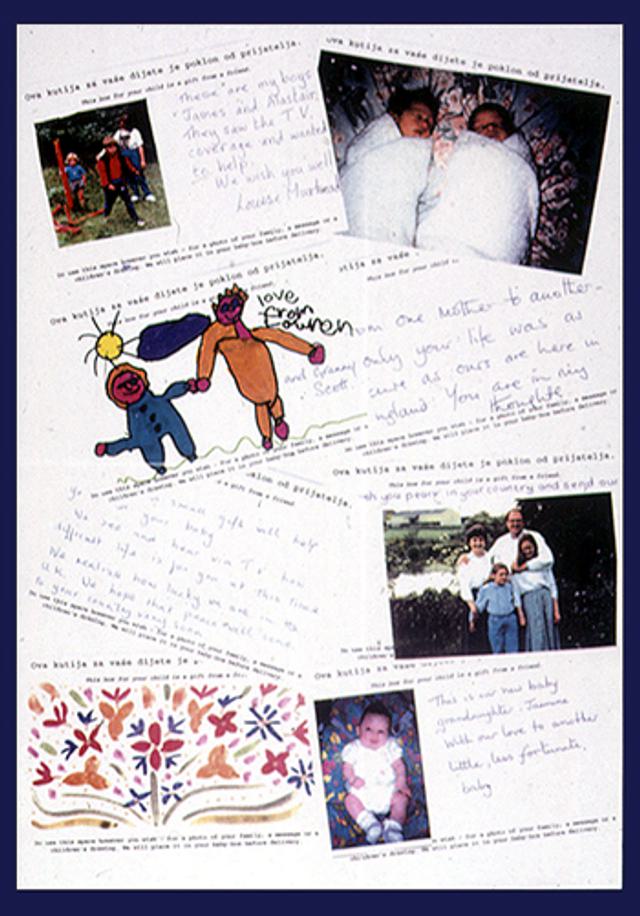 Ova kutija za vaše dijete je poklon od prijatelja.
This box for your child is a gift from a friend
These are my boys
James and Alastair.
They saw the T.V.
coverage and wanted
to help.
We wish you well
Louise
Do use this space however you wish - for a photo of your family, a message or a
children's drawing. We will place it in your baby-box before delivery.
Ova kutija za vaše dijete je poklon od prijatelja.
Ova kutija za vaše dijete je poklon od prijatelja.
box for your child is a gift from a friend.
love
from
Do use this space however you wish - for a photo of your family, a message or a
children's drawing. We will place it in your baby-box before delivery.
stija za vaše
this box for your child is
om one mother to another -
only your life was as
as ours are here in
ngland. You are in my
thoughts
and Granny
Scott.
Do use this space however you wish - for a photo of your family, a message or a
children's drawing. We will place it in your baby-box before delivery.
klon od prijatelja.
a gift from a friend
small gift will help
your baby
We see and hear via T.V. how
difficult life is for you at this time
We realise how lucky we are in the
U.K. We hope that peace will come
to your country very soon
Do use this space however you wish - for a photo of your family, a message or a
children's drawing. We will place it in your baby-box before delivery.
Ova kutija za vaše dijete je poklon od prijatelja.
This box for your child is a gift from a friend
sh you peace in your country and send our
Do use
childre
Ova kutija za vaše dijete je p
This box for your child is a gift from a fr
Do use this space however you wish - for a photo of your family, a message or a
children's drawing. We will place it in your baby-box before delivery.
Ova kutija za vaše
This box for your child is a gift from a friend
This is our new baby
grandaughter.
With our love to another
little, less fortunate,
baby
w wish - for a photo of your family, a message or a
children's drawing. We will place it in your baby-box before delivery.